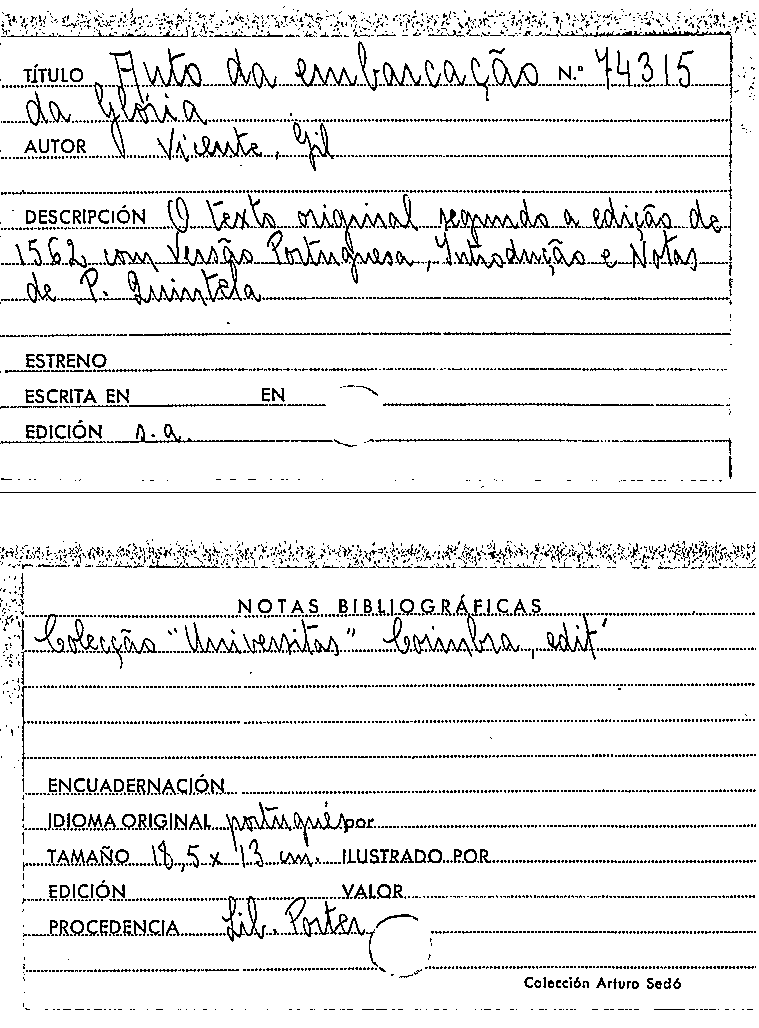 TÍTULO Auto da embarcação N.º 74315
da Glória
AUTOR Vicente, Gil
DESCRIPCIÓN O texto original segundo a edição de
1562 com Versão Portuguesa, Introdução e Notas
de P. Quintela
ESTRENO
ESCRITA EN EN
EDICIÓN s.a.
NOTAS BIBLIOGRÁFICAS
Colecção "Universitas" Coimbra, edit'
ENCUADERNACIÓN
IDIOMA ORIGINAL portugués por
TAMAÑO 18,5 x 13 cm. ILUSTRADO POR
EDICIÓN VALOR
PROCEDENCIA Lib. Porter
Colección Arturo Sedó